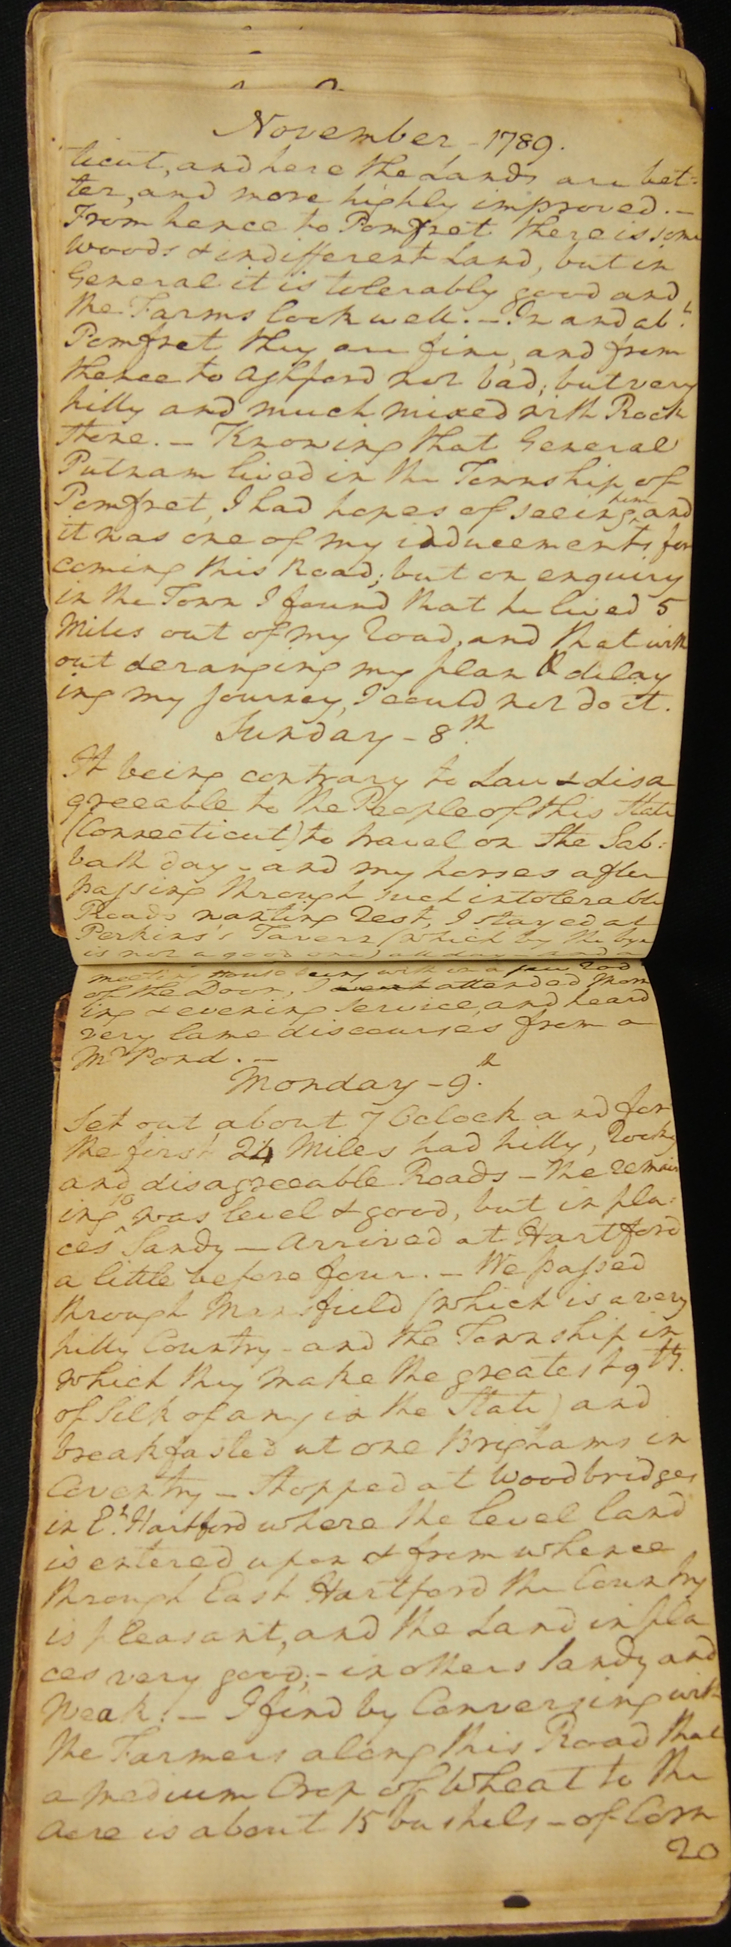 November - 1789.
ticut, and here the Lands are bet-
ter, and more highly improved. —
From hence to Pomfret there is some
Woods & indifferent Land, but in
General it is tolerably good and
the Farms look well. — In and abt.
Pomfret they are fine, and from
thence to Ashford not bad; but very
hilly and much mixed with Rock
Stone. — Knowing that General
Putnam lived in the Township of
Pomfret, I had hopes of seeing him and
it was one of my inducements for
coming this Road; but on enquiry
in the Town I found that he lived 5
Miles out of my road, and that with
out deranging my plan & delay
ing my journey, I could not do it.
Sunday - 8th.
It being contrary to Law & disa
greeable to the People of this State
(Connecticut) to travel on the Sab:
bath day - and my horses after
passing through such intolerable
Roads wanting rest, I stayed at
Perkins's Tavern (which by the bye
is not a good one) all day - and a
meeting House being with in a few rod
of the Door, I attended Morn
ing & evening Service, and heard
very lame discourses from a
Mr. Pond. —
Monday - 9th.
Set out about 7 Oclock and for
the first 24 Miles had hilly, rocky
and disagreeable Roads - the remain
ing 10 was level & good, but in pla:
ces Sandy — Arrived at Hartford
a little before four. — We passed
through Mansfield (which is a very
hilly Country - and the Township in
which they make the greatest qty.
of Silk of any in the State) and
breakfasted at one Brighams in
Coventry — Stopped at Woodbridges
in Et. Hartford where the level land
is entered upon & from whence
through East Hartford the Country
is pleasant, and the Land in pla
ces very good; - in others Sandy and
Weak. — I find by Conversing with
the Farmers along this Road that
a medium Crop of Wheat to the
Acre is about 15 bushels - of Corn
20